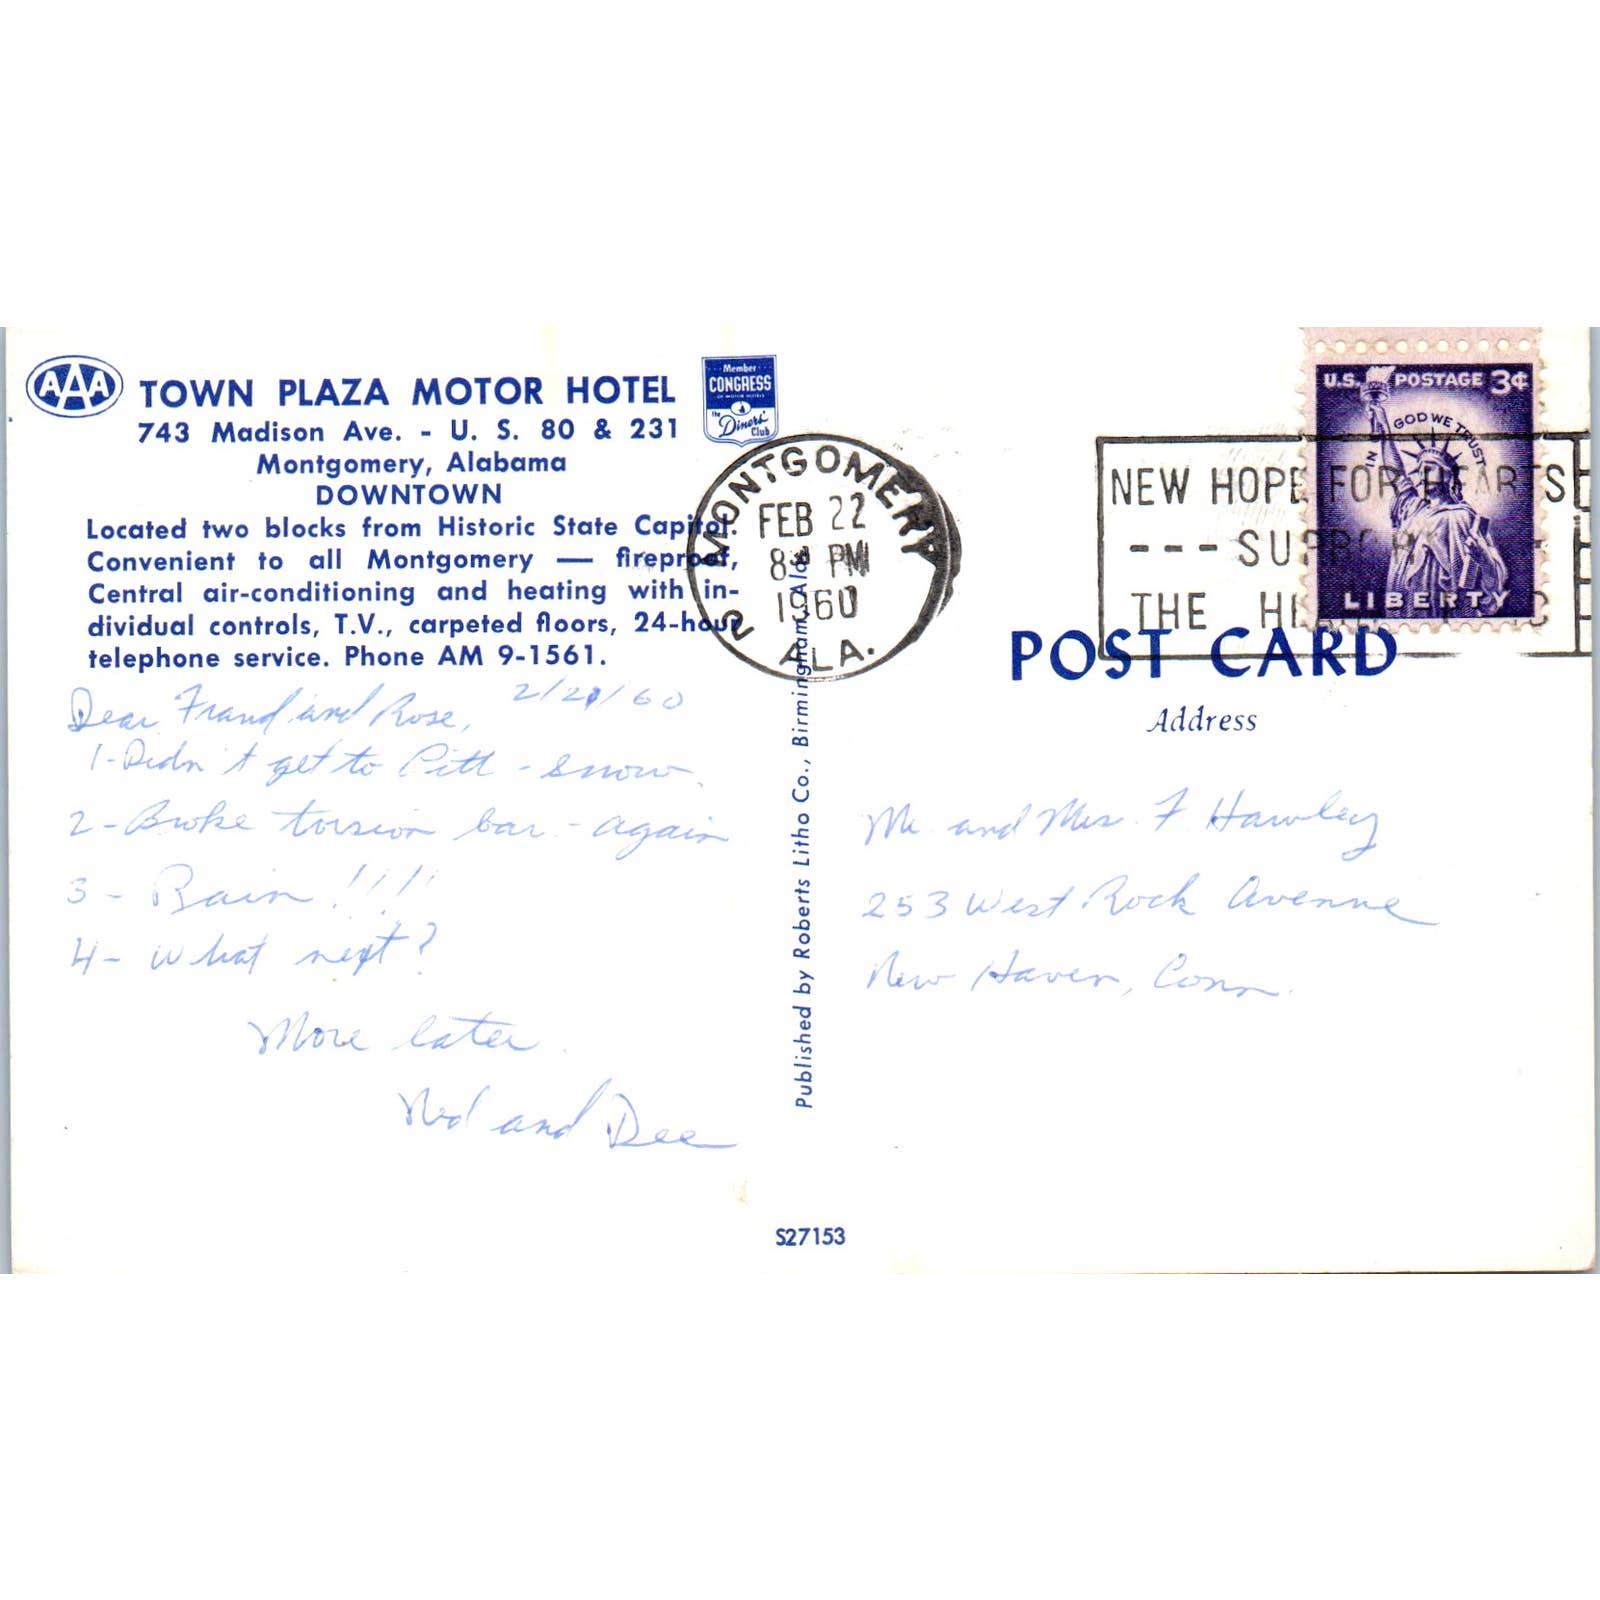 AAA
TOWN PLAZA MOTOR HOTEL
743 Madison Ave. - U. S. 80 & 231
Montgomery, Alabama
DOWNTOWN
Located two blocks from Historic State Capitol.
Convenient to all Montgomery — fireproof,
Central air-conditioning and heating with in-
dividual controls, T.V., carpeted floors, 24-hour
telephone service. Phone AM 9-1561.
Member
CONGRESS
OF MOTOR HOTELS
the Diners' Club
Dear and Rose, 2/21/60
1-Didn't get to Pitt - snow.
2-Broke torsion bar - again
3- Rain !!!!
4- What next?
More later.
Ned and Dee
Published by Roberts Litho Co., Birmingham, Ala.
S27153
MONTGOMERY
FEB 22
PM
1960
2 ALA.
NEW HOPE FOR HEARTS
--- SUPPORT
THE
U.S. POSTAGE 3¢
IN GOD WE TRUST
LIBERTY
POST CARD
Address
Mr. and Mrs. F Hawley
253 West Rock Avenue
New Haven, Conn.